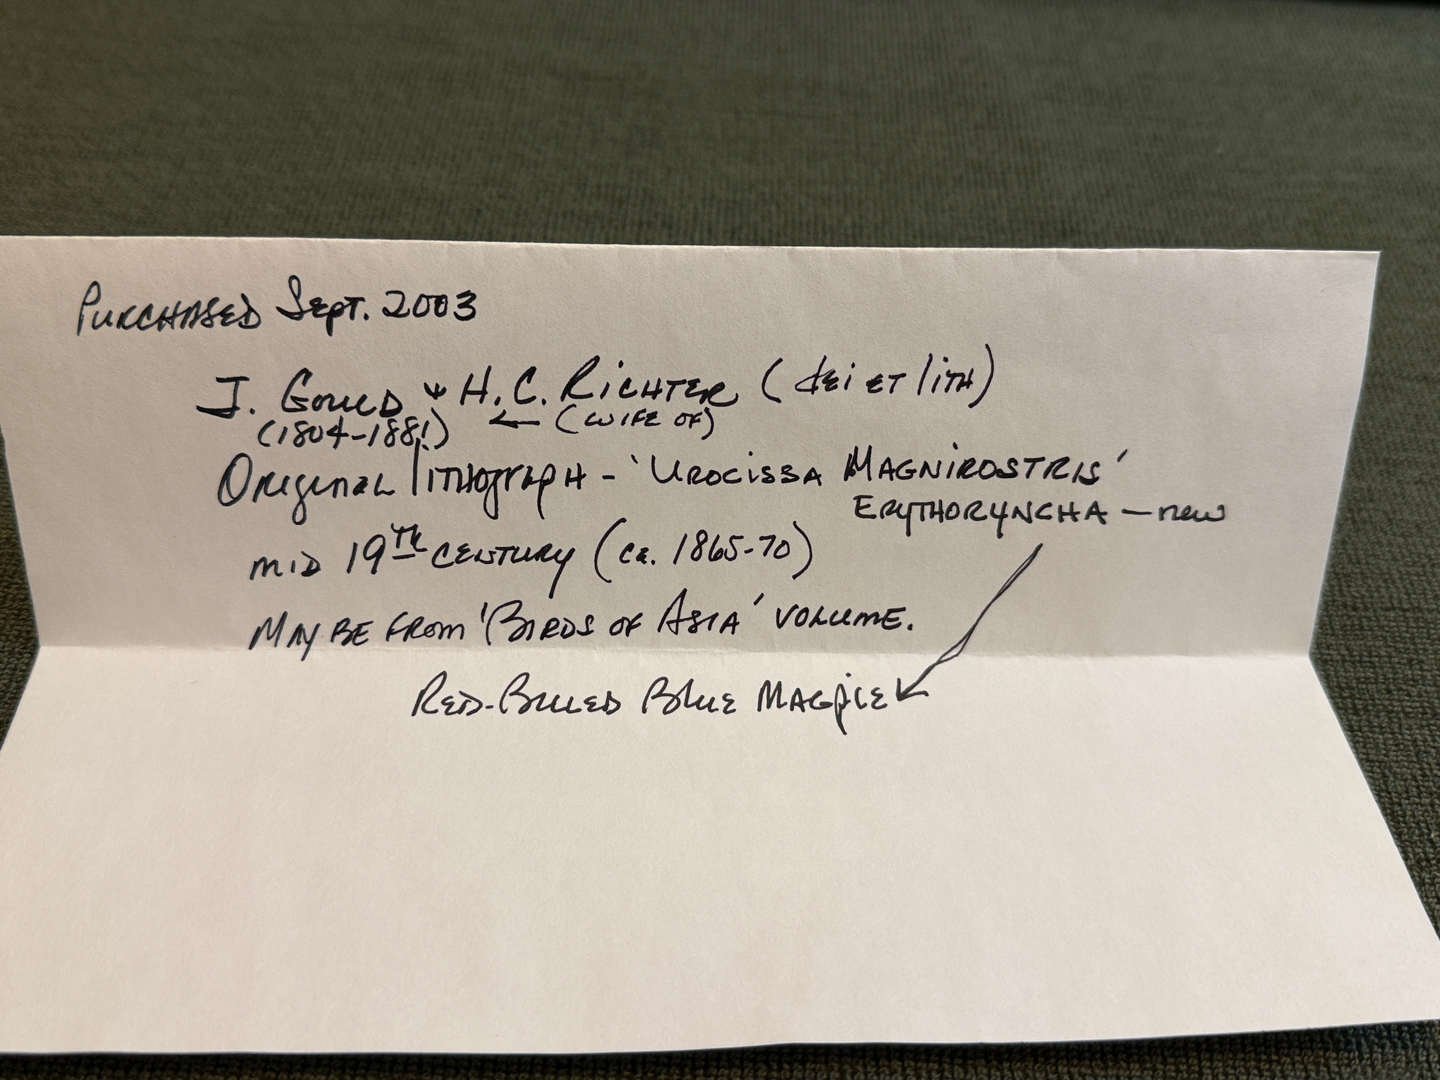 PURCHASED Sept. 2003
J. GOULD & H.C. RICHTER (del ET lith)
(1804-1881) ← (WIFE OF)
ORIGINAL lithograph - 'UROCISSA MAGNIROSTRIS'
ERYTHORYNCHA — new
mid 19TH CENTURY (ca. 1865-70)
MAYBE FROM 'BIRDS OF ASIA' VOLUME.
RED-BILLED BLUE MAGPIE